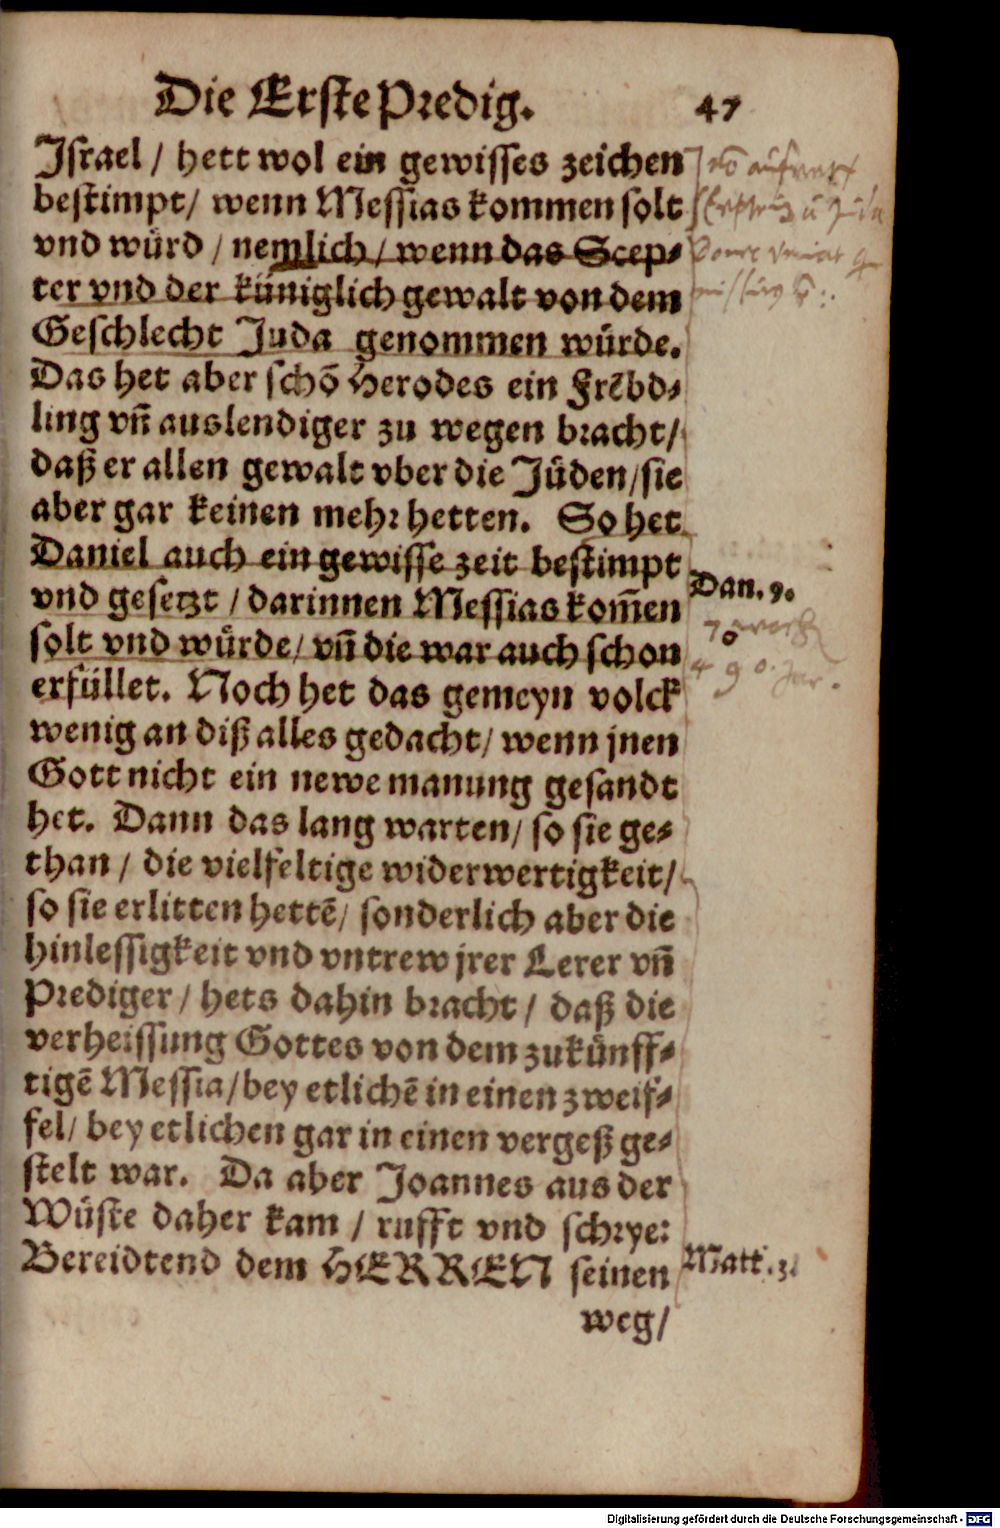 Die Erste Predig. 47
Israel / hett wol ein gewisses zeichen
bestimpt / wenn Messias kommen solt
vnd würd / nemlich / wenn das Scep⸗
ter vnd der küniglich gewalt von dem
Geschlecht Juda genommen würde.
Das het aber schõ Herodes ein Frẽbd⸗
ling vñ auslendiger zu wegen bracht /
daß er allen gewalt vber die Jüden / sie
aber gar keinen mehr hetten. So het
Daniel auch ein gewisse zeit bestimpt
Dan. 9.
vnd gesetzt / darinnen Messias kom̃en
solt vnd würde / vñ die war auch schon
490. Jar.
erfüllet. Noch het das gemeyn volck
wenig an diß alles gedacht / wenn jnen
Gott nicht ein newe manung gesandt
het. Dann das lang warten / so sie ge⸗
than / die vielfeltige widerwertigkeit /
so sie erlitten hettẽ / sonderlich aber die
hinlessigkeit vnd vntrew jrer Lerer vñ
Prediger / hets dahin bracht / daß die
verheissung Gottes von dem zukünff⸗
tigẽ Messia / bey etlichẽ in einen zweif⸗
fel / bey etlichen gar in einen vergeß ge⸗
stelt war. Da aber Joannes aus der
Wüste daher kam / rufft vnd schrye:
Bereidtend dem HERREN seinen
Matt. 3.
weg /
Digitalisierung gefördert durch die Deutsche Forschungsgemeinschaft - DFG